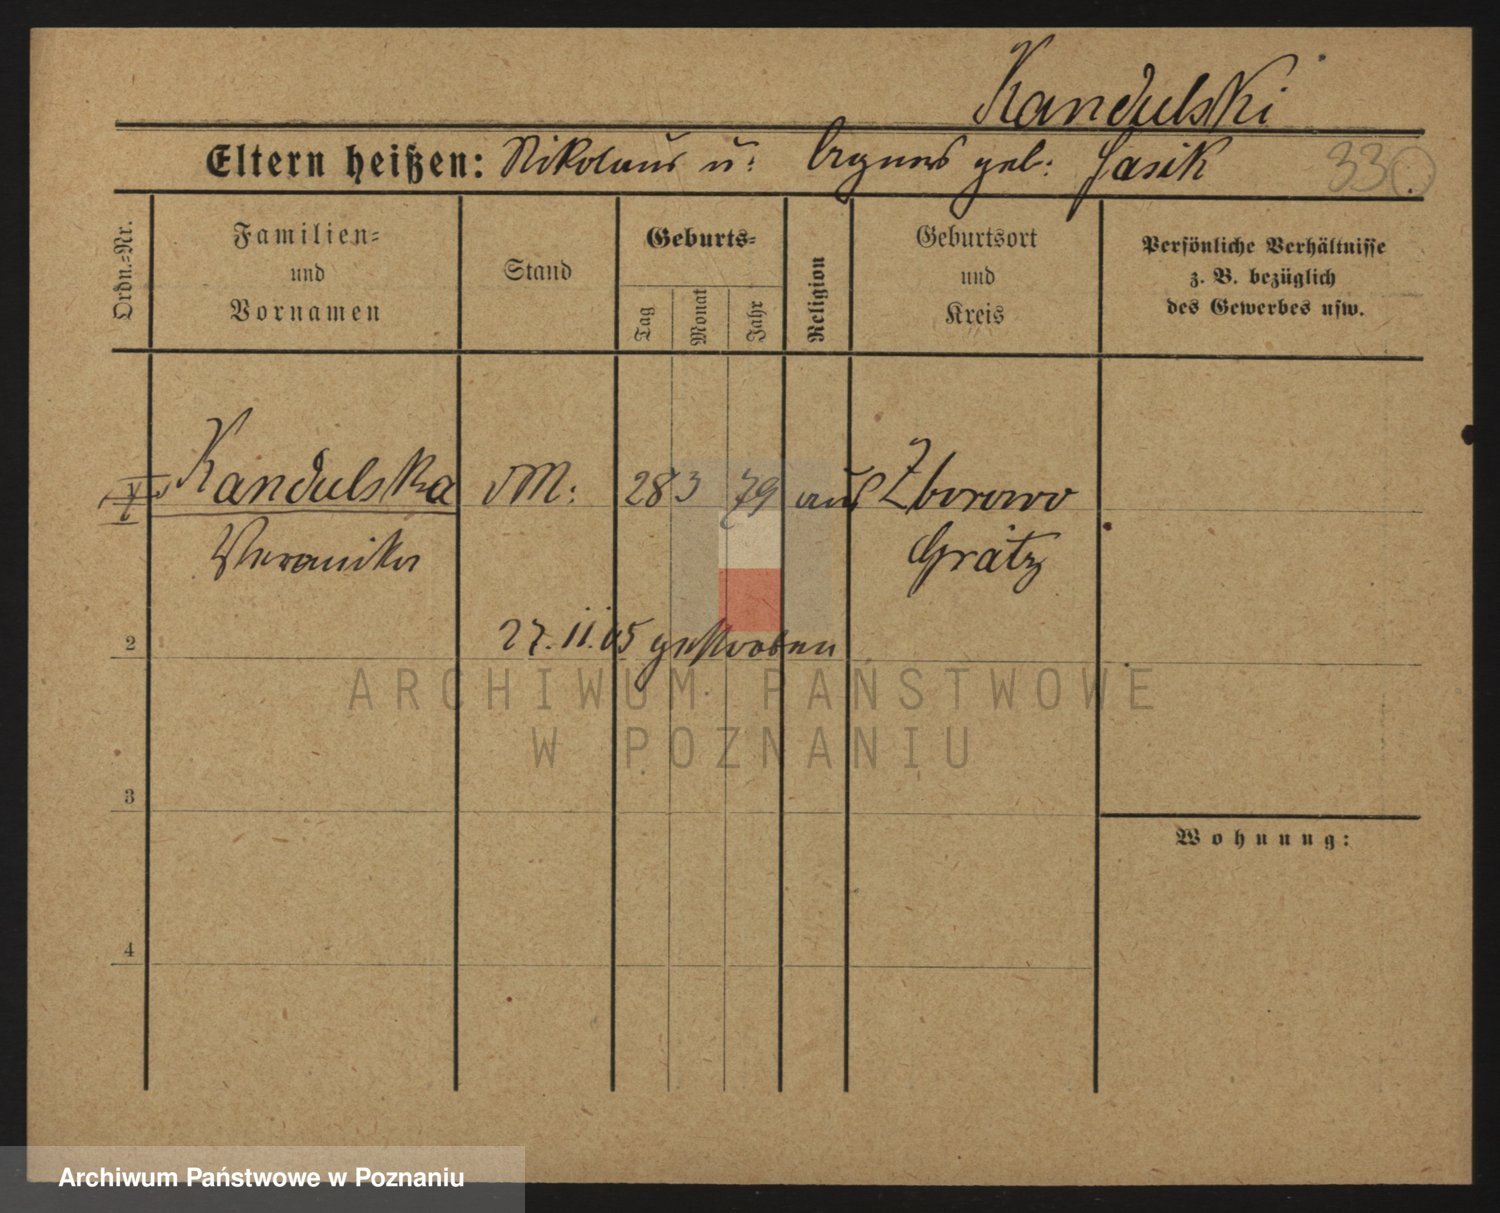 Kandulski
Eltern heißen: Nikolaus u: Agnes geb: Jasik
330
Ordn.-Nr.
Familien-
und
Vornamen
Stand
Geburts-
Tag
Monat
Jahr
Religion
Geburtsort
und
Kreis
Persönliche Verhältnisse
z. B. bezüglich
des Gewerbes usw.
Kandulska
Veronika
M:
28 3 79
aus Zborowo
Grätz
27. 11. 05 gestorben
2
3
4
Wohnung:
ARCHIWUM PAŃSTWOWE
W POZNANIU
Archiwum Państwowe w Poznaniu